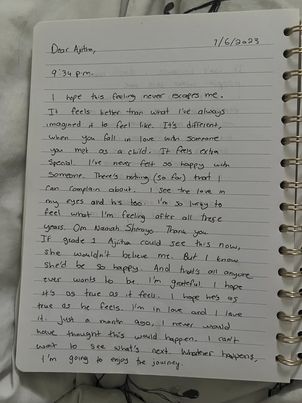 Dear Ajitha,
7/6/2023
9:34 p.m.
I hope this feeling never escapes me.
It feels better than what I've always
imagined it to feel like. It's different,
when you fall in love with someone
you met as a child. It feels extra
special. I've never felt so happy with
someone. There's nothing (so far) that I
can complain about. I see the love in
my eyes and his too. I'm so lucky to
feel what I'm feeling after all these
years. Om Namah Shivaya. Thank you.
If grade 1 Ajitha could see this now,
she wouldn't believe me. But I know
she'd be so happy. And that's all anyone
ever wants to be. I'm grateful. I hope
it's as true as it feels. I hope he's as
true as he feels. I'm in love and I love
it. Just a month ago, I never would
have thought this would happen. I can't
wait to see what's next. Whatever happens,
I'm going to enjoy the journey.